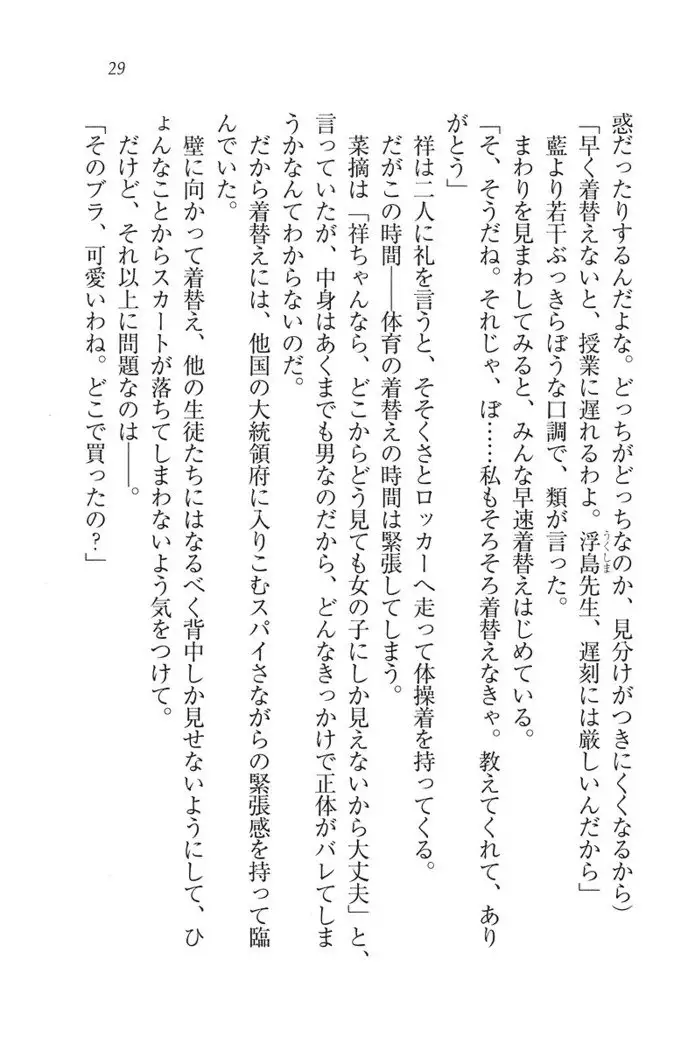 29
惑だったりするんだよな。どっちがどっちなのか、見分けがつきにくくなるから）
「早く着替えないと、授業に遅れるわよ。浮島先生、遅刻には厳しいんだから」
うくしま
藍より若干ぶっきらぼうな口調で、類が言った。
まわりを見まわしてみると、みんな早速着替えはじめている。
「そ、そうだね。それじゃ、ぼ……私もそろそろ着替えなきゃ。教えてくれて、あり
がとう」
祥は二人に礼を言うと、そそくさとロッカーへ走って体操着を持ってくる。
だがこの時間――体育の着替えの時間は緊張してしまう。
菜摘は「祥ちゃんなら、どこからどう見ても女の子にしか見えないから大丈夫」と、
言っていたが、中身はあくまでも男なのだから、どんなきっかけで正体がバレてしま
うかなんてわからないのだ。
だから着替えには、他国の大統領府に入りこむスパイさながらの緊張感を持って臨
んでいた。
壁に向かって着替え、他の生徒たちにはなるべく背中しか見せないようにして、ひ
ょんなことからスカートが落ちてしまわないよう気をつけて。
だけど、それ以上に問題なのは――。
「そのブラ、可愛いわね。どこで買ったの？」